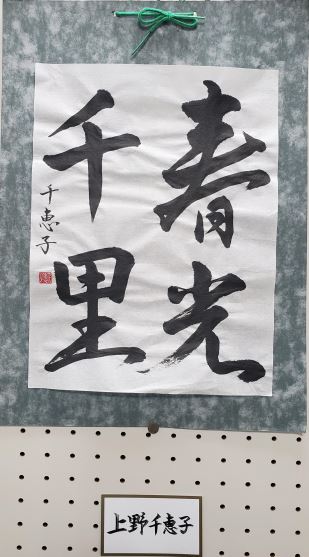 春光
千里
千恵子
上野千恵子